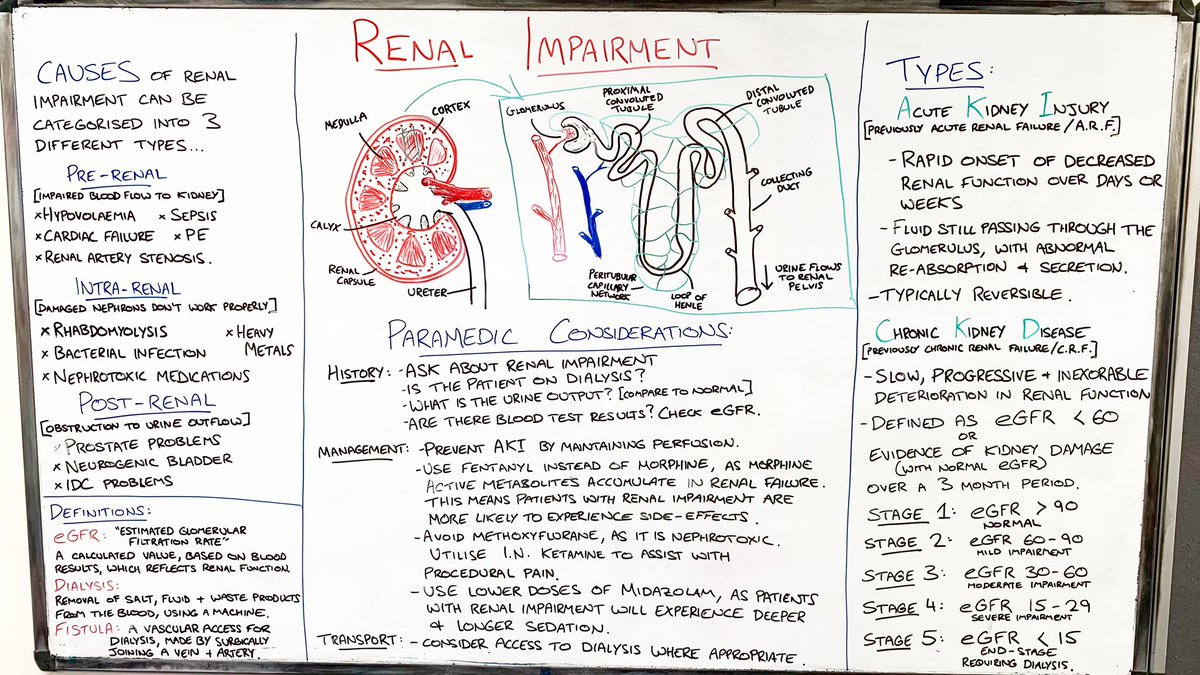 RENAL IMPAIRMENT
CAUSES OF RENAL
IMPAIRMENT CAN BE
CATEGORISED INTO 3
DIFFERENT TYPES...
PRE-RENAL
[IMPAIRED BLOOD FLOW TO KIDNEY]
×HYPOVOLAEMIA × SEPSIS
×CARDIAC FAILURE × PE
×RENAL ARTERY STENOSIS.
INTRA-RENAL
[DAMAGED NEPHRONS DON'T WORK PROPERLY]
× RHABDOMYOLYSIS × HEAVY
METALS
× BACTERIAL INFECTION
× NEPHROTOXIC MEDICATIONS
POST-RENAL
[OBSTRUCTION TO URINE OUTFLOW]
× PROSTATE PROBLEMS
× NEUROGENIC BLADDER
× IDC PROBLEMS
DEFINITIONS:
eGFR: "ESTIMATED GLOMERULAR
FILTRATION RATE"
A CALCULATED VALUE, BASED ON BLOOD
RESULTS, WHICH REFLECTS RENAL FUNCTION.
DIALYSIS:
REMOVAL OF SALT, FLUID + WASTE PRODUCTS
FROM THE BLOOD, USING A MACHINE.
FISTULA: A VASCULAR ACCESS FOR
DIALYSIS, MADE BY SURGICALLY
JOINING A VEIN + ARTERY.
MEDULLA
CORTEX
CALYX
RENAL
CAPSULE
URETER
GLOMERULUS
PROXIMAL
CONVOLUTED
TUBULE
DISTAL
CONVOLUTED
TUBULE
COLLECTING
DUCT
PERITUBULAR
CAPILLARY
NETWORK
LOOP OF
HENLE
URINE FLOWS
TO RENAL
PELVIS
PARAMEDIC CONSIDERATIONS:
HISTORY: -ASK ABOUT RENAL IMPAIRMENT
-IS THE PATIENT ON DIALYSIS?
-WHAT IS THE URINE OUTPUT? [COMPARE TO NORMAL]
-ARE THERE BLOOD TEST RESULTS? CHECK eGFR.
MANAGEMENT: -PREVENT AKI BY MAINTAINING PERFUSION.
-USE FENTANYL INSTEAD OF MORPHINE, AS MORPHINE
ACTIVE METABOLITES ACCUMULATE IN RENAL FAILURE.
THIS MEANS PATIENTS WITH RENAL IMPAIRMENT ARE
MORE LIKELY TO EXPERIENCE SIDE-EFFECTS.
-AVOID METHOXYFLURANE, AS IT IS NEPHROTOXIC.
UTILISE I.N. KETAMINE TO ASSIST WITH
PROCEDURAL PAIN.
-USE LOWER DOSES OF MIDAZOLAM, AS PATIENTS
WITH RENAL IMPAIRMENT WILL EXPERIENCE DEEPER
& LONGER SEDATION.
TRANSPORT: -CONSIDER ACCESS TO DIALYSIS WHERE APPROPRIATE.
TYPES:
ACUTE KIDNEY INJURY
[PREVIOUSLY ACUTE RENAL FAILURE/A.R.F.]
-RAPID ONSET OF DECREASED
RENAL FUNCTION OVER DAYS OR
WEEKS
-FLUID STILL PASSING THROUGH THE
GLOMERULUS, WITH ABNORMAL
RE-ABSORPTION & SECRETION.
-TYPICALLY REVERSIBLE.
CHRONIC KIDNEY DISEASE
[PREVIOUSLY CHRONIC RENAL FAILURE/C.R.F.]
-SLOW, PROGRESSIVE & INEXORABLE
DETERIORATION IN RENAL FUNCTION
-DEFINED AS eGFR <60
OR
EVIDENCE OF KIDNEY DAMAGE
(WITH NORMAL eGFR)
OVER A 3 MONTH PERIOD.
STAGE 1: eGFR >90
NORMAL
STAGE 2: eGFR 60-90
MILD IMPAIRMENT
STAGE 3: eGFR 30-60
MODERATE IMPAIRMENT
STAGE 4: eGFR 15-29
SEVERE IMPAIRMENT
STAGE 5: eGFR <15
END-STAGE
REQUIRING DIALYSIS.